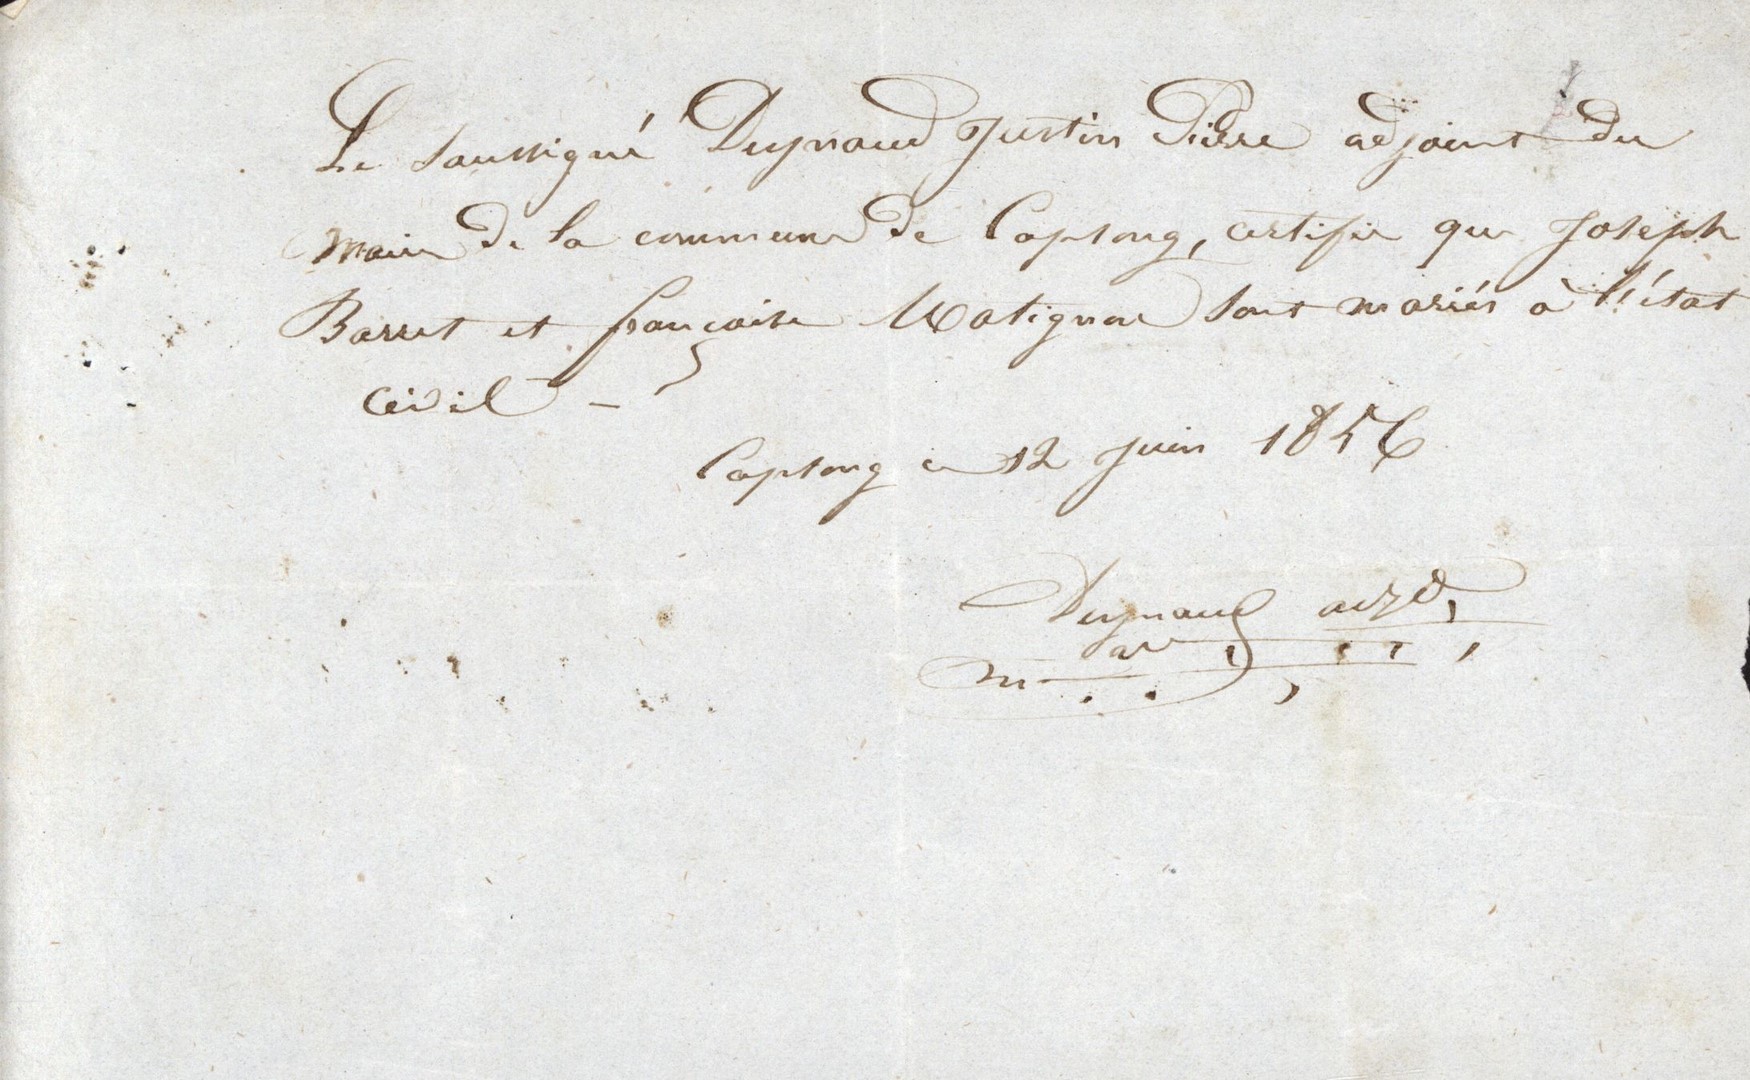 Le Soussigné Deynaud Justin Pierre adjoint du
maire de la commune de Caplong, certifie que Joseph
Barret et françoise Matignon sont mariés à l'état
Civil –
Caplong ce 12 juin 1856
Deynaud adjt